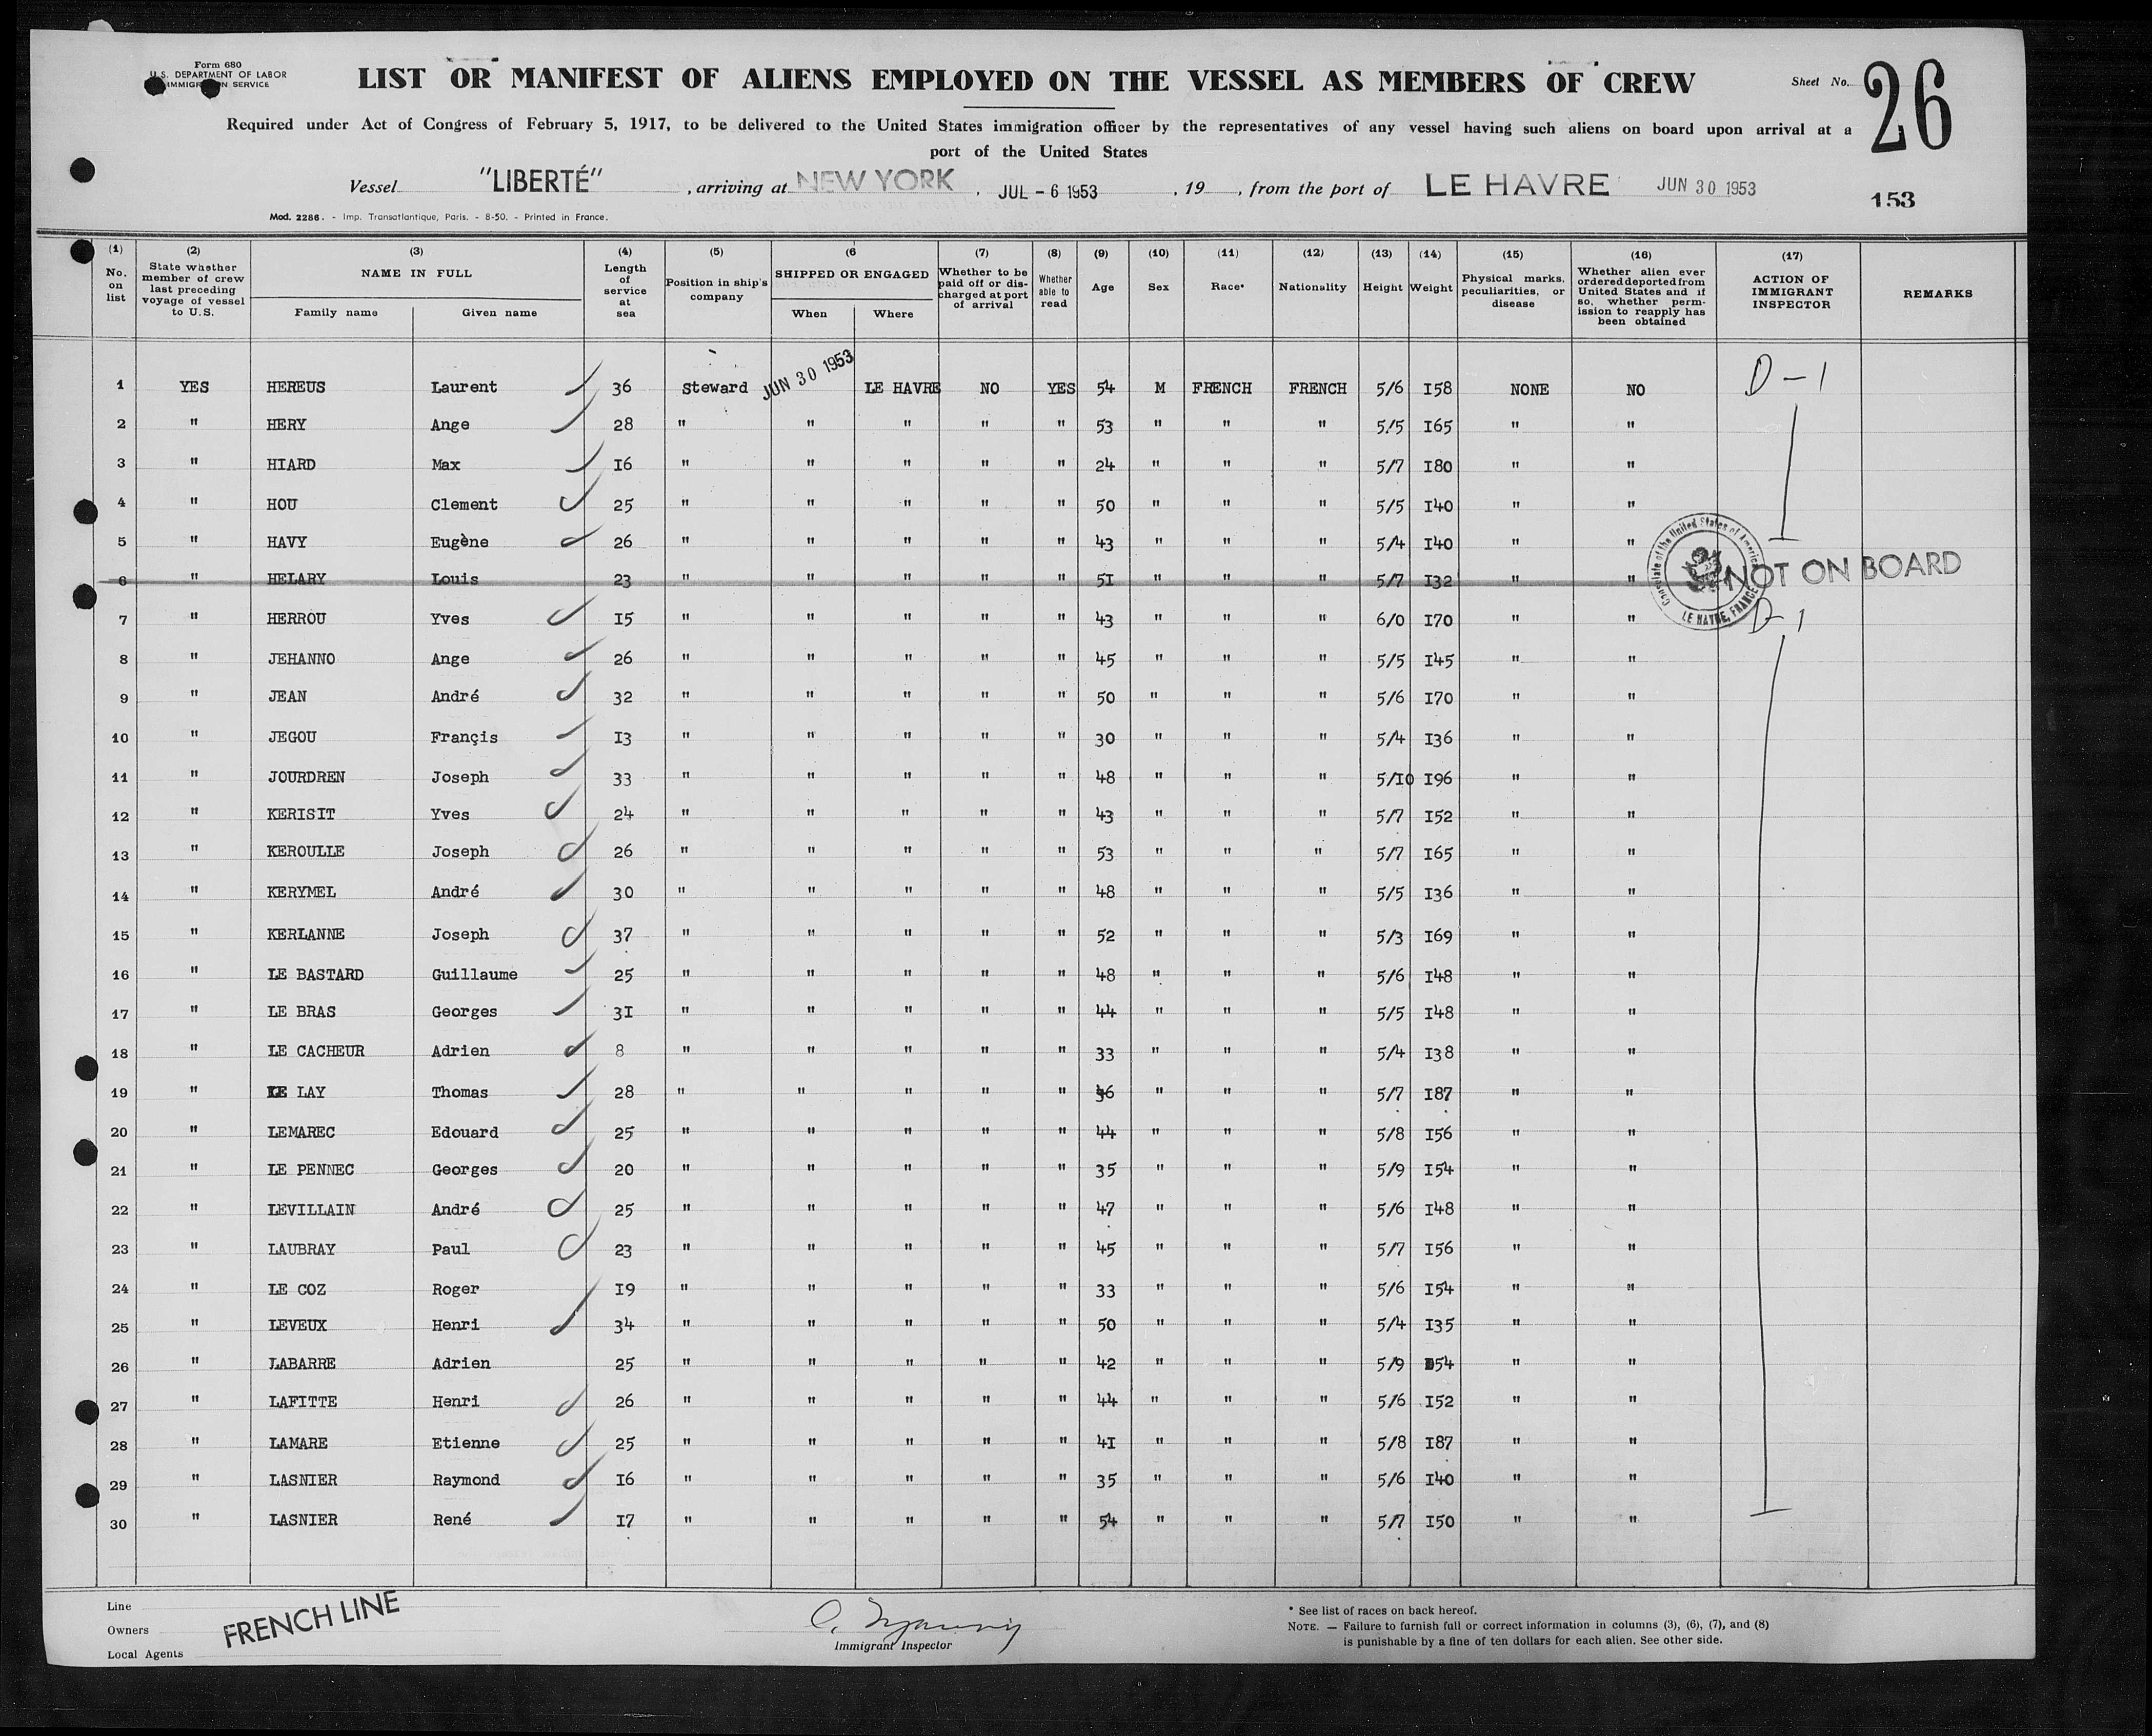 Form 680
U.S. DEPARTMENT OF LABOR
IMMIGRATION SERVICE
LIST OR MANIFEST OF ALIENS EMPLOYED ON THE VESSEL AS MEMBERS OF CREW
Sheet No. 26
Required under Act of Congress of February 5, 1917, to be delivered to the United States immigration officer by the representatives of any vessel having such aliens on board upon arrival at a
port of the United States
Vessel "LIBERTÉ", arriving at NEW YORK, JUL - 6 1953, 19 , from the port of LE HAVRE JUN 30 1953
153
Mod. 2286. - Imp. Transatlantique, Paris. - 8-50. - Printed in France.
(1) No. on list (2) State whether member of crew last preceding voyage of vessel to U.S. (3) NAME IN FULL Family name Given name (4) Length of service at sea (5) Position in ship's company (6 SHIPPED OR ENGAGED When Where (7) Whether to be paid off or discharged at port of arrival (8) Whether able to read (9) Age (10) Sex (11) Race* (12) Nationality (13) Height (14) Weight (15) Physical marks, peculiarities, or disease (16) Whether alien ever ordered deported from United States and if so, whether permission to reapply has been obtained (17) ACTION OF IMMIGRANT INSPECTOR REMARKS
1 YES HEREUS Laurent 36 Steward JUN 30 1953 LE HAVRE NO YES 54 M FRENCH FRENCH 5/6 I58 NONE NO D-1
2 " HERY Ange 28 " " " " " 53 " " " 5/5 I65 " "
3 " HIARD Max I6 " " " " " 24 " " " 5/7 I80 " "
4 " HOU Clement 25 " " " " " 50 " " " 5/5 I40 " "
5 " HAVY Eugène 26 " " " " " 43 " " " 5/4 I40 " "
6 " HELARY Louis 23 " " " " " 5I " " " 5/7 I32 " " NOT ON BOARD
Consulate of the United States of America LE HAVRE, FRANCE
7 " HERROU Yves I5 " " " " " 43 " " " 6/0 I70 " " D-1
8 " JEHANNO Ange 26 " " " " " 45 " " " 5/5 I45 " "
9 " JEAN André 32 " " " " " 50 " " " 5/6 I70 " "
10 " JEGOU Françis I3 " " " " " 30 " " " 5/4 I36 " "
11 " JOURDREN Joseph 33 " " " " " 48 " " " 5/I0 I96 " "
12 " KERISIT Yves 24 " " " " " 43 " " " 5/7 I52 " "
13 " KEROULLE Joseph 26 " " " " " 53 " " " 5/7 I65 " "
14 " KERYMEL André 30 " " " " " 48 " " " 5/5 I36 " "
15 " KERLANNE Joseph 37 " " " " " 52 " " " 5/3 I69 " "
16 " LE BASTARD Guillaume 25 " " " " " 48 " " " 5/6 I48 " "
17 " LE BRAS Georges 3I " " " " " 44 " " " 5/5 I48 " "
18 " LE CACHEUR Adrien 8 " " " " " 33 " " " 5/4 I38 " "
19 " LE LAY Thomas 28 " " " " " " " " 5/7 I87 " "
20 " LEMAREC Edouard 25 " " " " " 44 " " " 5/8 I56 " "
21 " LE PENNEC Georges 20 " " " " " 35 " " " 5/9 I54 " "
22 " LEVILLAIN André 25 " " " " " 47 " " " 5/6 I48 " "
23 " LAUBRAY Paul 23 " " " " " 45 " " " 5/7 I56 " "
24 " LE COZ Roger I9 " " " " " 33 " " " 5/6 I54 " "
25 " LEVEUX Henri 34 " " " " " 50 " " " 5/4 I35 " "
26 " LABARRE Adrien 25 " " " " " 42 " " " 5/9 I54 " "
27 " LAFITTE Henri 26 " " " " " 44 " " " 5/6 I52 " "
28 " LAMARE Etienne 25 " " " " " 4I " " " 5/8 I87 " "
29 " LASNIER Raymond I6 " " " " " 35 " " " 5/6 I40 " "
30 " LASNIER René I7 " " " " " 54 " " " 5/7 I50 " "
Line
Owners FRENCH LINE
Local Agents
Immigrant Inspector
* See list of races on back hereof.
NOTE. — Failure to furnish full or correct information in columns (3), (6), (7), and (8)
is punishable by a fine of ten dollars for each alien. See other side.